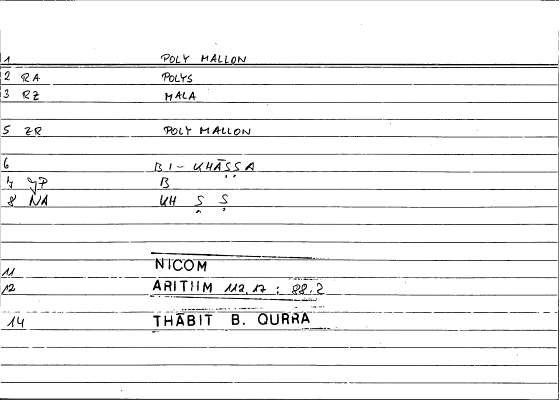 1 POLY MALLON
2 RA POLYS
3 RZ MALA
5 ZR POLY MALLON
6 BI - KHĀṢṢA
7 JP B
8 NA KH Ṣ Ṣ
11 NICOM
12 ARITIIM 112.17 : 88.2
14 THĀBIT B. QURRA